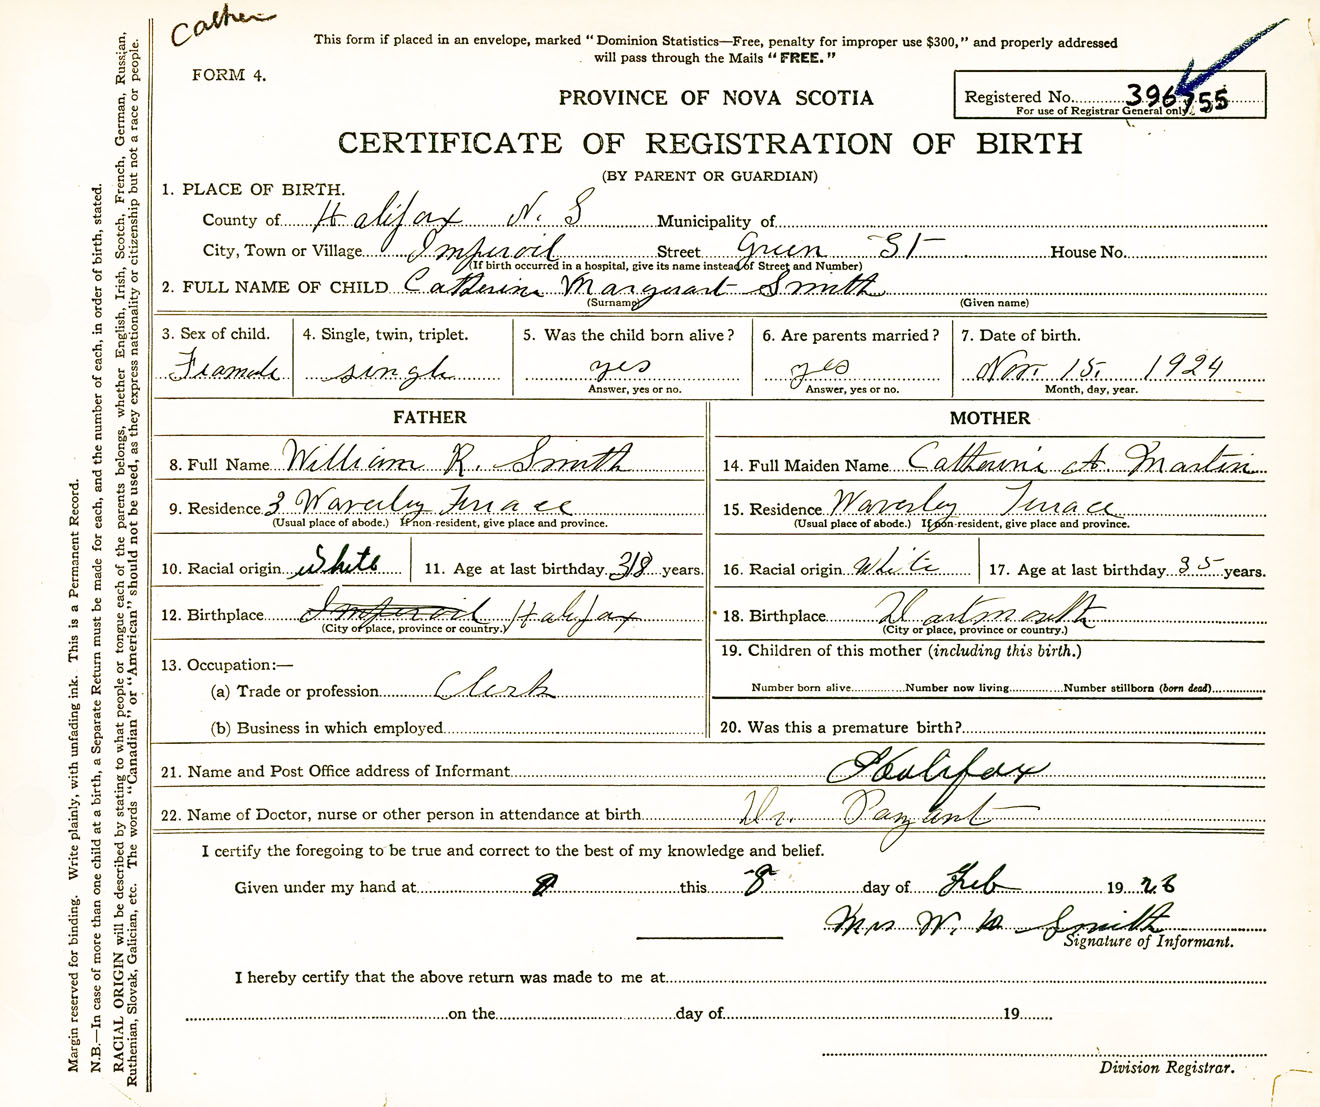 Cather
This form if placed in an envelope, marked "Dominion Statistics—Free, penalty for improper use $300," and properly addressed
will pass through the Mails "FREE."
FORM 4.
PROVINCE OF NOVA SCOTIA
Registered No. 396755
For use of Registrar General only.
CERTIFICATE OF REGISTRATION OF BIRTH
(BY PARENT OR GUARDIAN)
1. PLACE OF BIRTH.
County of Halifax N. S Municipality of
City, Town or Village Imperoil Street Green St House No.
(If birth occurred in a hospital, give its name instead of Street and Number)
2. FULL NAME OF CHILD Catherine Margeart Smith
(Surname) (Given name)
3. Sex of child. 4. Single, twin, triplet. 5. Was the child born alive? 6. Are parents married? 7. Date of birth.
Fiamale single yes yes Nov. 15. 1924
Answer, yes or no. Answer, yes or no. Month, day, year.
FATHER MOTHER
8. Full Name William R. Smith 14. Full Maiden Name Catherine A. Martin
9. Residence 3 Waverley Terrace 15. Residence Waverley Terrace
(Usual place of abode.) If non-resident, give place and province. (Usual place of abode.) If non-resident, give place and province.
10. Racial origin White 11. Age at last birthday 38 years. 16. Racial origin White 17. Age at last birthday 35 years.
12. Birthplace Imperoil Halifax 18. Birthplace Dartmouth
(City or place, province or country.) (City or place, province or country.)
13. Occupation:— 19. Children of this mother (including this birth.)
(a) Trade or profession Clerk Number born alive Number now living Number stillborn (born dead)
(b) Business in which employed 20. Was this a premature birth?
21. Name and Post Office address of Informant Halifax
22. Name of Doctor, nurse or other person in attendance at birth Dr. Pazant
I certify the foregoing to be true and correct to the best of my knowledge and belief.
Given under my hand at this 8 day of Feb 19
Mrs W. R Smith
Signature of Informant.
I hereby certify that the above return was made to me at
on the day of 19
Division Registrar.
Margin reserved for binding. Write plainly, with unfading ink. This is a Permanent Record.
N.B.—In case of more than one child at a birth, a Separate Return must be made for each, and the number of each, in order of birth, stated.
RACIAL ORIGIN will be described by stating to what people or tongue each of the parents belongs, whether English, Irish, Scotch, French, German, Russian,
Ruthenian, Slovak, Galician, etc. The words "Canadian" or "American" should not be used, as they express nationality or citizenship but not a race or people.